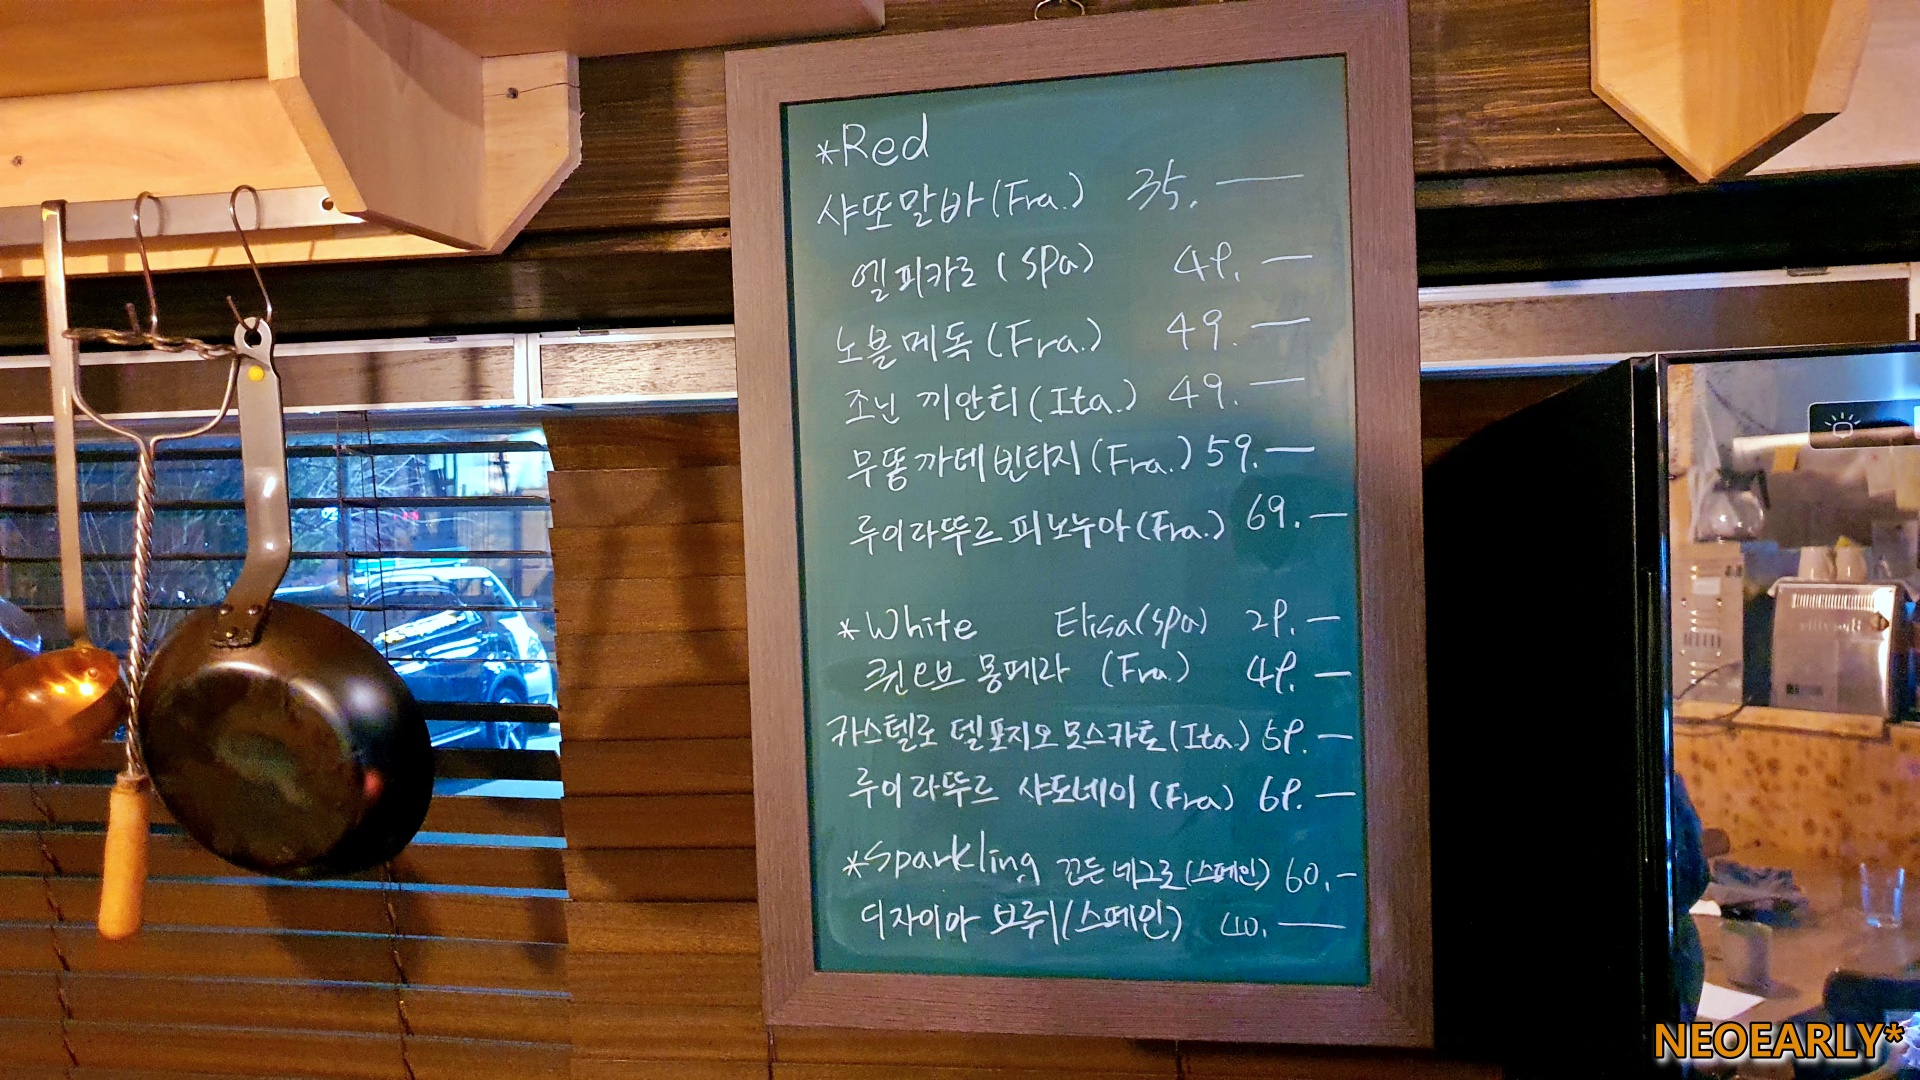 *Red
샤또말바(Fra.) 35.—
엘피카로(Spa) 49.—
노블메독(Fra.) 49.—
조닌 끼안티(Ita.) 49.—
무똥까데빈티지(Fra.) 59.—
루이라뚜르 피노누아(Fra.) 69.—
*White Elisa(Spa) 29.—
퀸오브 몽페라 (Fra.) 49.—
카스텔로 델포지오 모스카토(Ita.) 59.—
루이라뚜르 샤도네이(Fra) 69.—
*Sparkling 꼰든네그로(스페인) 60.-
디자이아 브뤼(스페인) 40.—
NEOEARLY*